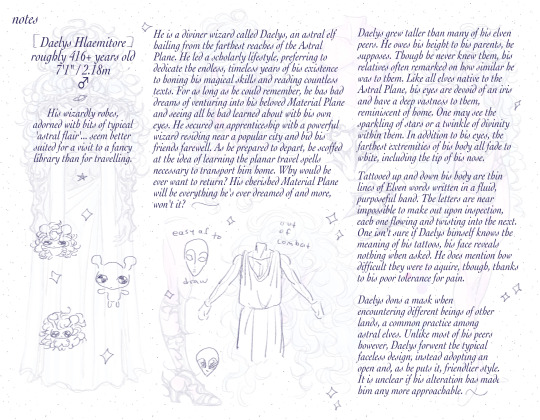 notes
[Daelys Hlaemitore]
roughly 416+ years old
7'1"/2.18m
♂
His wizardly robes,
adorned with bits of typical
'astral flair'... seem better
suited for a visit to a fancy
library than for travelling.
He is a diviner wizard called Daelys, an astral elf
hailing from the farthest reaches of the Astral
Plane. He led a scholarly lifestyle, preferring to
dedicate the endless, timeless years of his existence
to honing his magical skills and reading countless
texts. For as long as he could remember, he has had
dreams of venturing into his beloved Material Plane
and seeing all he had learned about with his own
eyes. He secured an apprenticeship with a powerful
wizard residing near a popular city and bid his
friends farewell. As he prepared to depart, he scoffed
at the idea of learning the planar travel spells
necessary to transport him home. Why would he
ever want to return? His cherished Material Plane
will be everything he's ever dreamed of and more,
won't it?
easy af to
draw
out
of
combat
Daelys grew taller than many of his elven
peers. He owes his height to his parents, he
supposes. Though he never knew them, his
relatives often remarked on how similar he
was to them. Like all elves native to the
Astral Plane, his eyes are devoid of an iris
and have a deep vastness to them,
reminiscent of home. One may see the
sparkling of stars or a twinkle of divinity
within them. In addition to his eyes, the
farthest extremities of his body all fade to
white, including the tip of his nose.
Tattooed up and down his body are thin
lines of Elven words written in a fluid,
purposeful hand. The letters are near
impossible to make out upon inspection,
each one flowing and twisting into the next.
One isn't sure if Daelys himself knows the
meaning of his tattoos, his face reveals
nothing when asked. He does mention how
difficult they were to aquire, though, thanks
to his poor tolerance for pain.
Daelys dons a mask when
encountering different beings of other
lands, a common practice among
astral elves. Unlike most of his peers
however, Daelys forwent the typical
faceless design, instead adopting an
open and, as he puts it, friendlier style.
It is unclear if his alteration has made
him any more approachable.